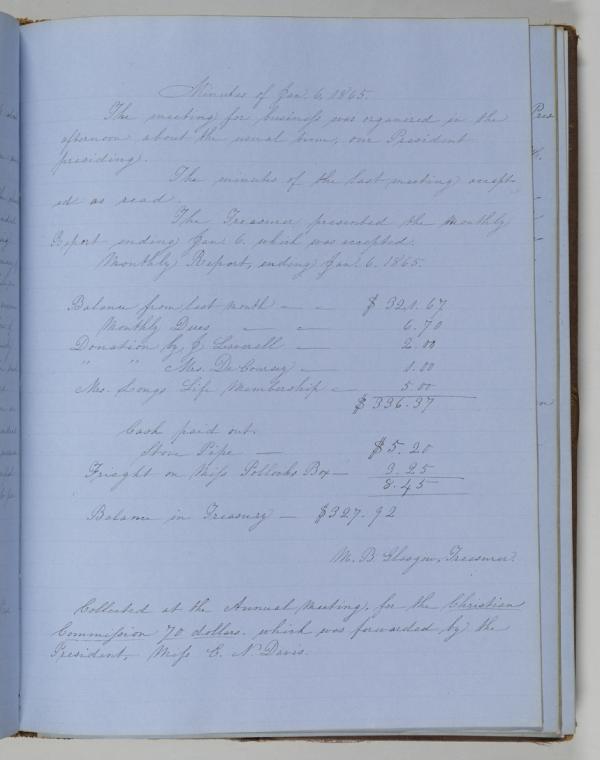 Minutes of Jan. 6, 1865.
The meeting for business was organized in the
afternoon about the usual time, our President
presiding.
The minutes of the last meeting accept-
ed as read.
The Treasurer presented the Monthly
Report ending Jan. 6. which was accepted.
Monthly Report, ending Jan. 6. 1865.
Balance from last month — — $321.67
Monthly Dues — — 6.70
Donation by J. — 2.00
" " Mrs. De Coursey — 1.00
Mrs. Longs Life Membership — 5.00
$336.37
Cash paid out.
Stove Pipe — $5.20
Frieght on Miss Pollocks Box — 3.25
8.45
Balance in Treasury — $327.92
M. B. Glasgow, Treasurer.
Collected at the Annual Meeting, for the Christian
Commission 70 dollars. which was forwarded by the
President, Miss E. N. Davis.